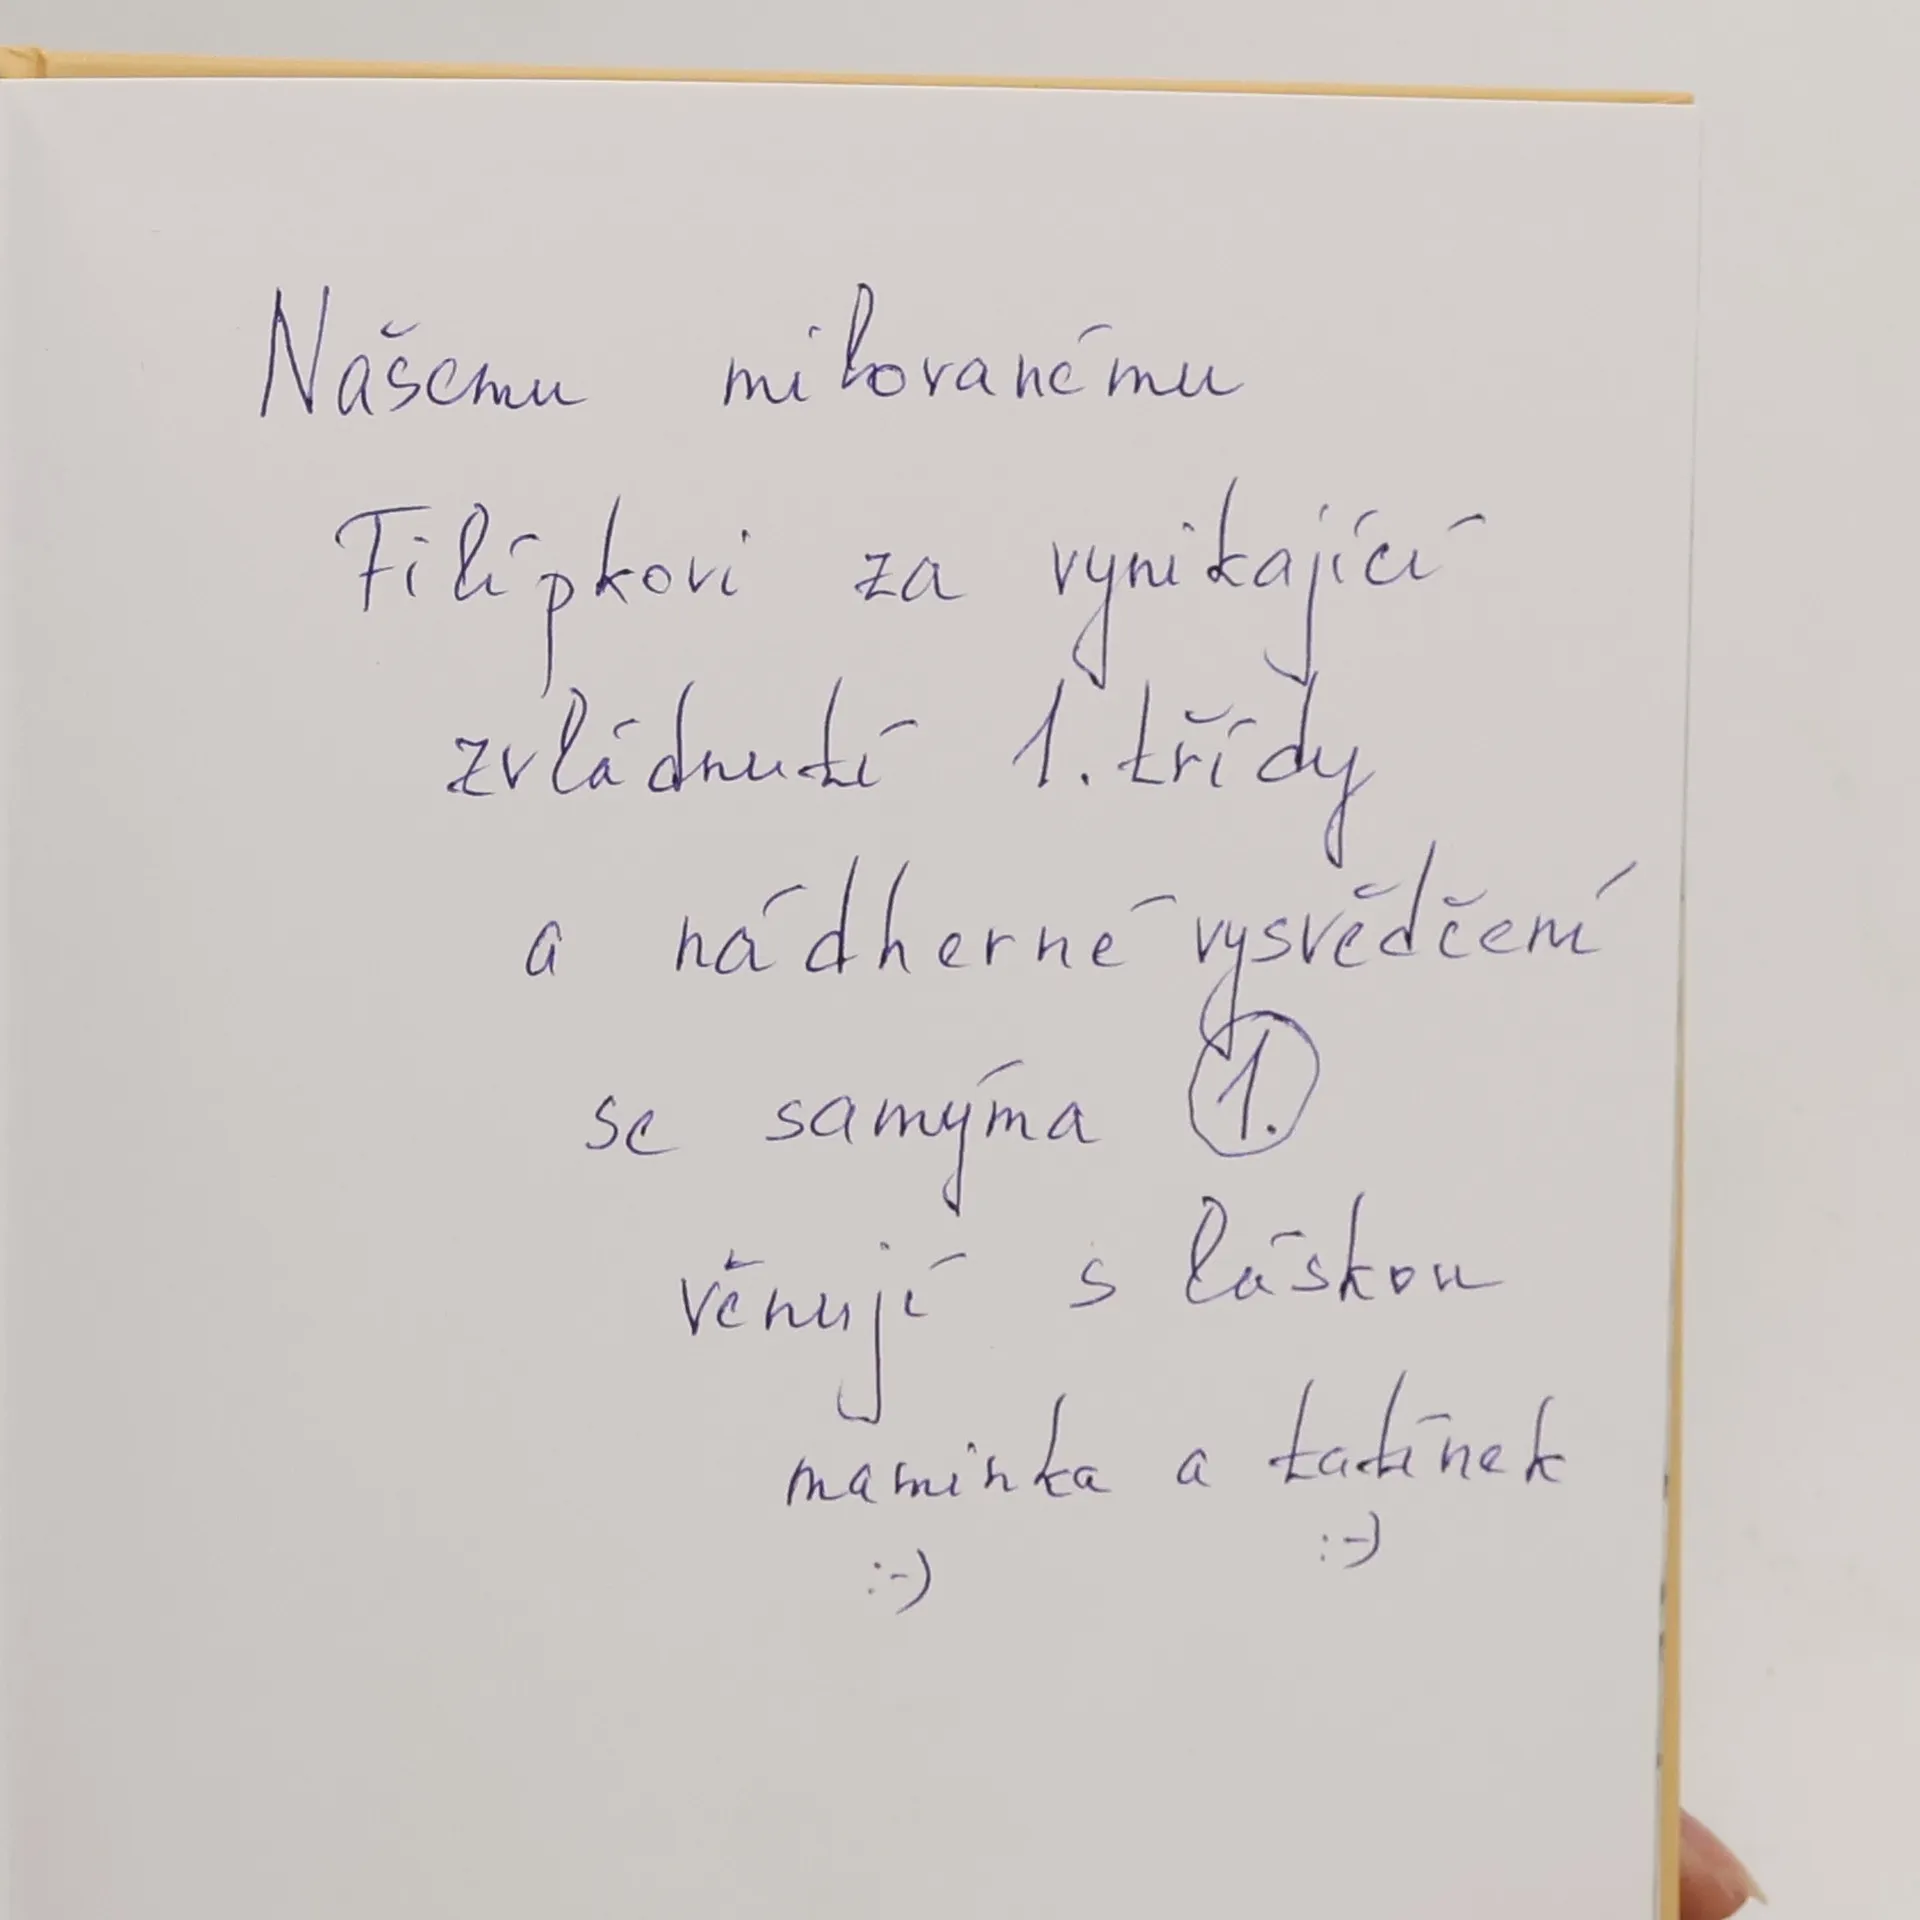 Našemu milovanému
Filípkovi za vynikající
zvládnutí 1. třídy
a nádherné vysvědčení
se samýma 1.
věnují s láskou
maminka a tatínek
:-) :-)